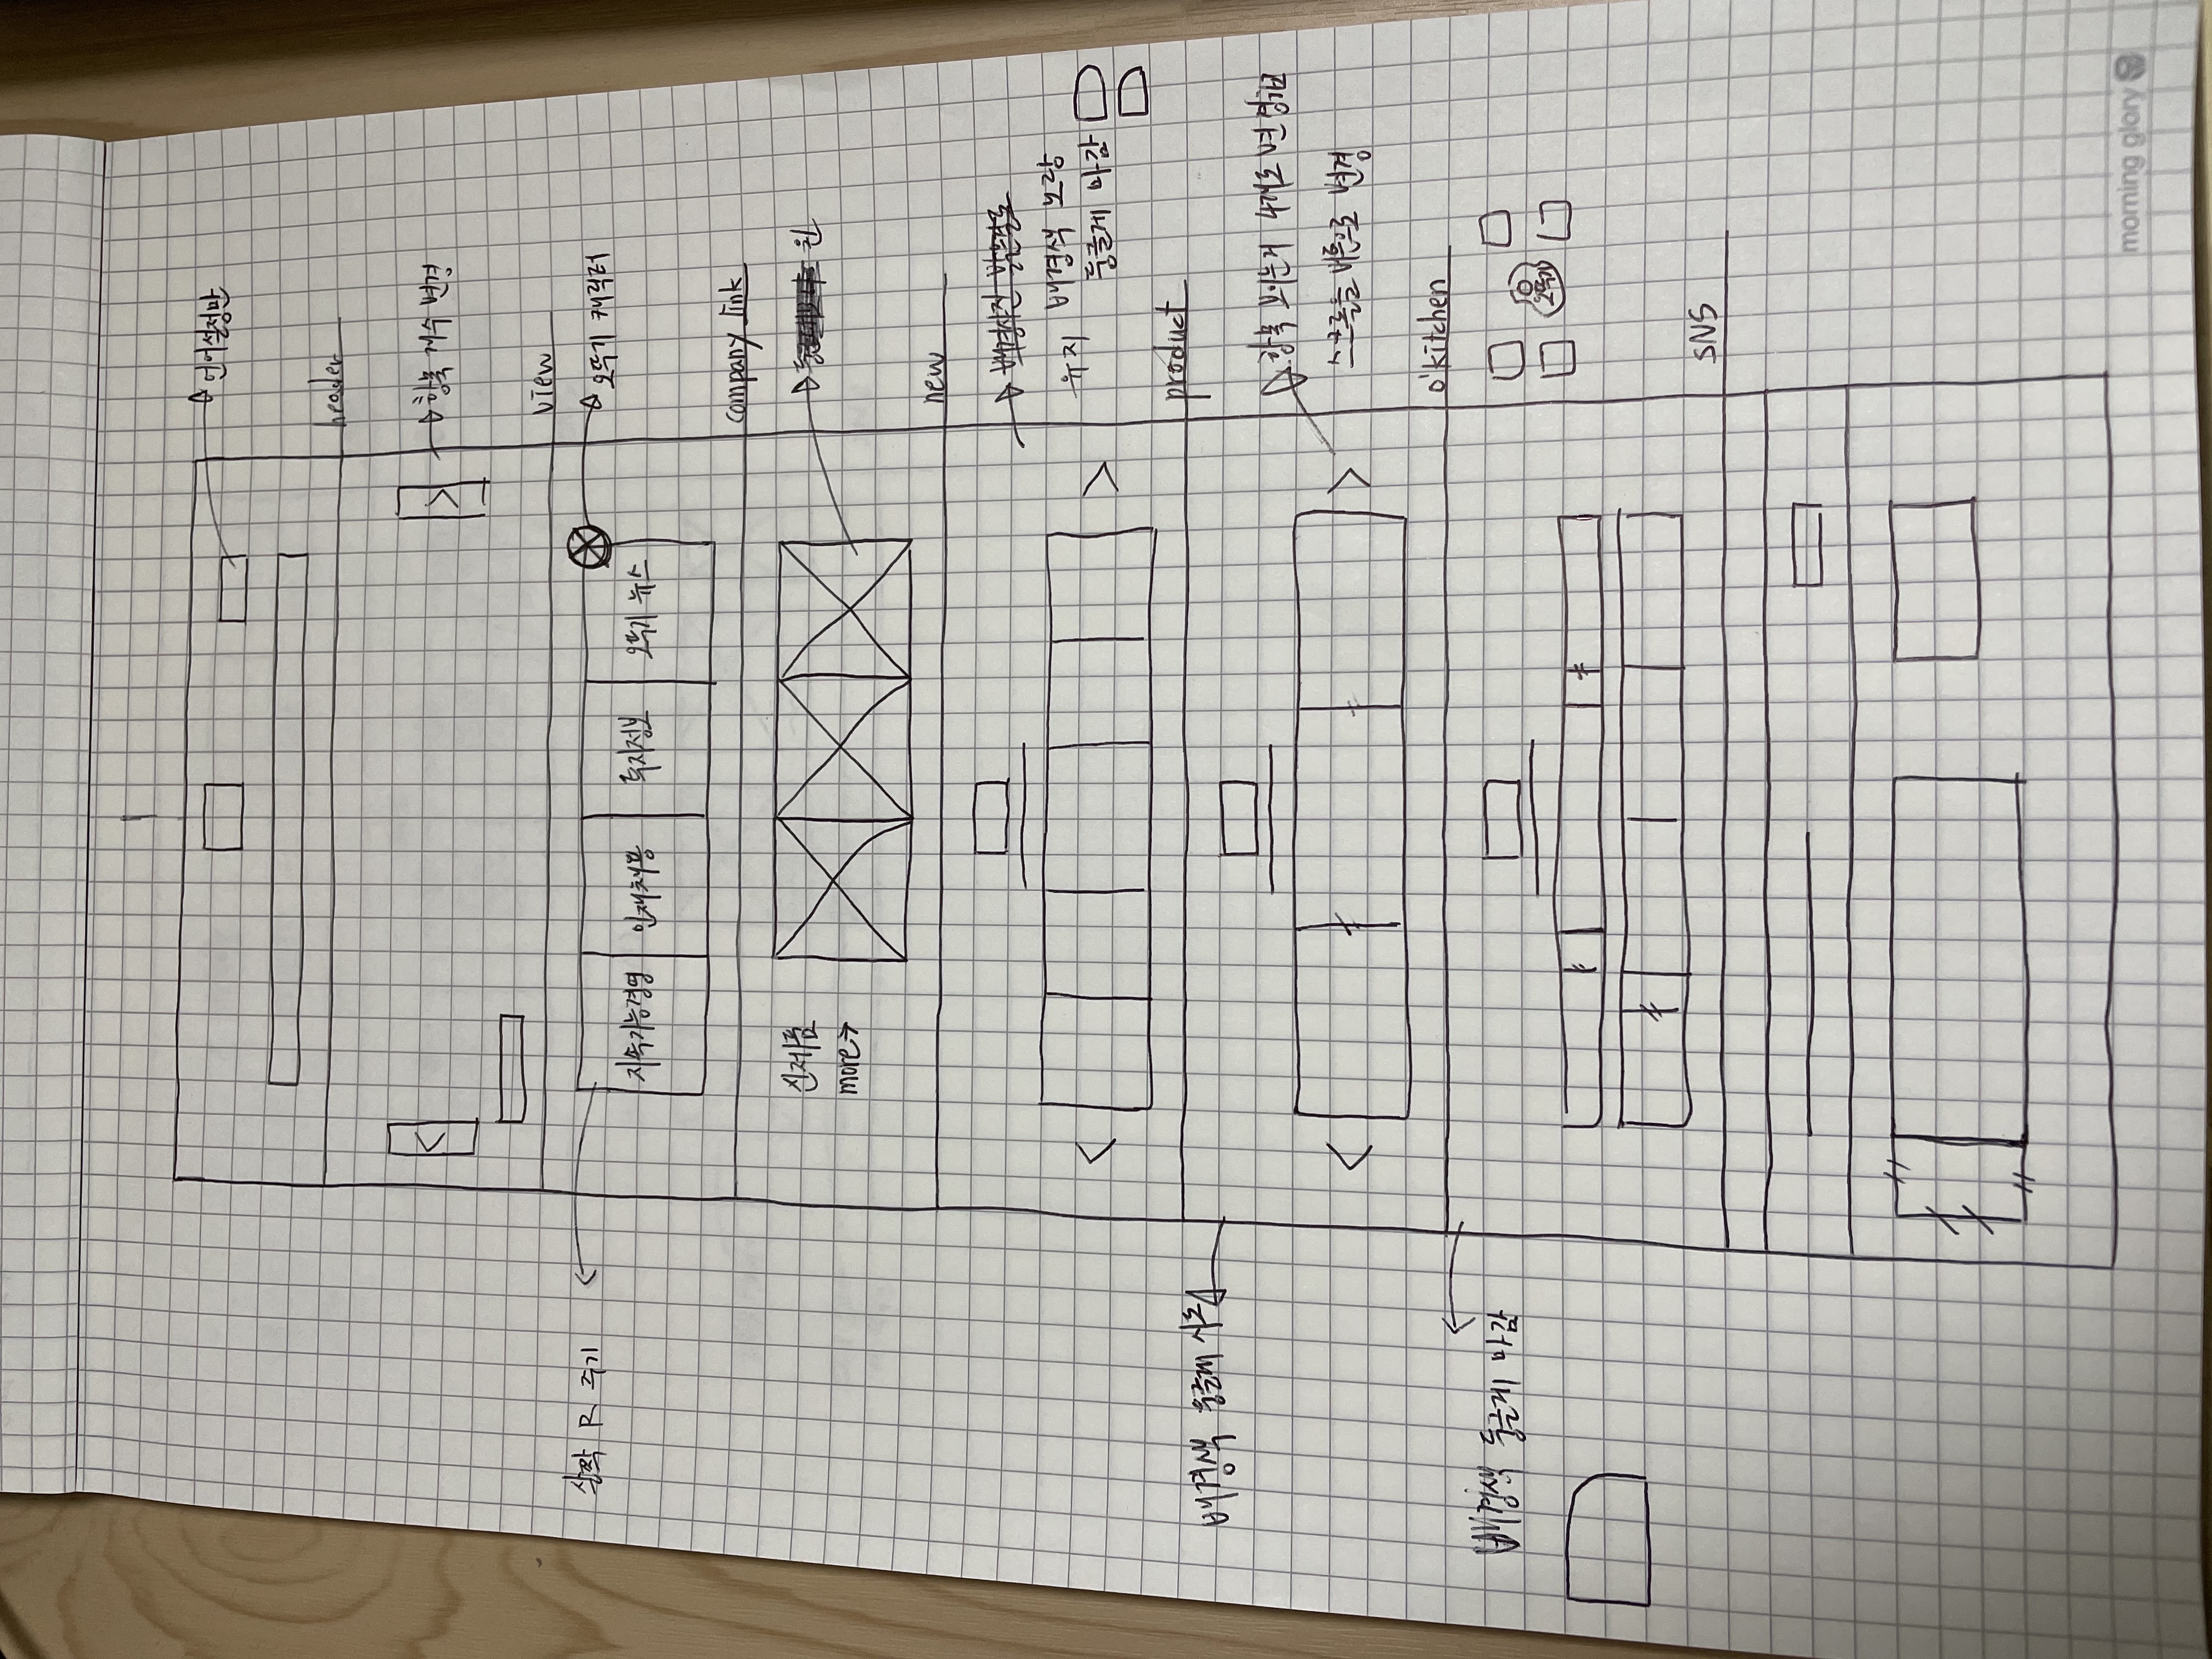 언어설정만
header
<
>
항목 개수 변경
view
살짝 R 주기
지속가능경영
인재채용
투자정보
오뚜기 뉴스
오뚜기 캐릭터
company link
신제품
more→
원
new
배경사진 밝은걸로
유지 배경색 노랑
둥글게 마감
<
>
product
배경색 둥글게 시도
항목 보이는거 4개로 변경하고
스크롤을 버튼으로 변경
<
>
o'kitchen
배경색 둥글게 마감
오뚜기
SNS
morning glory